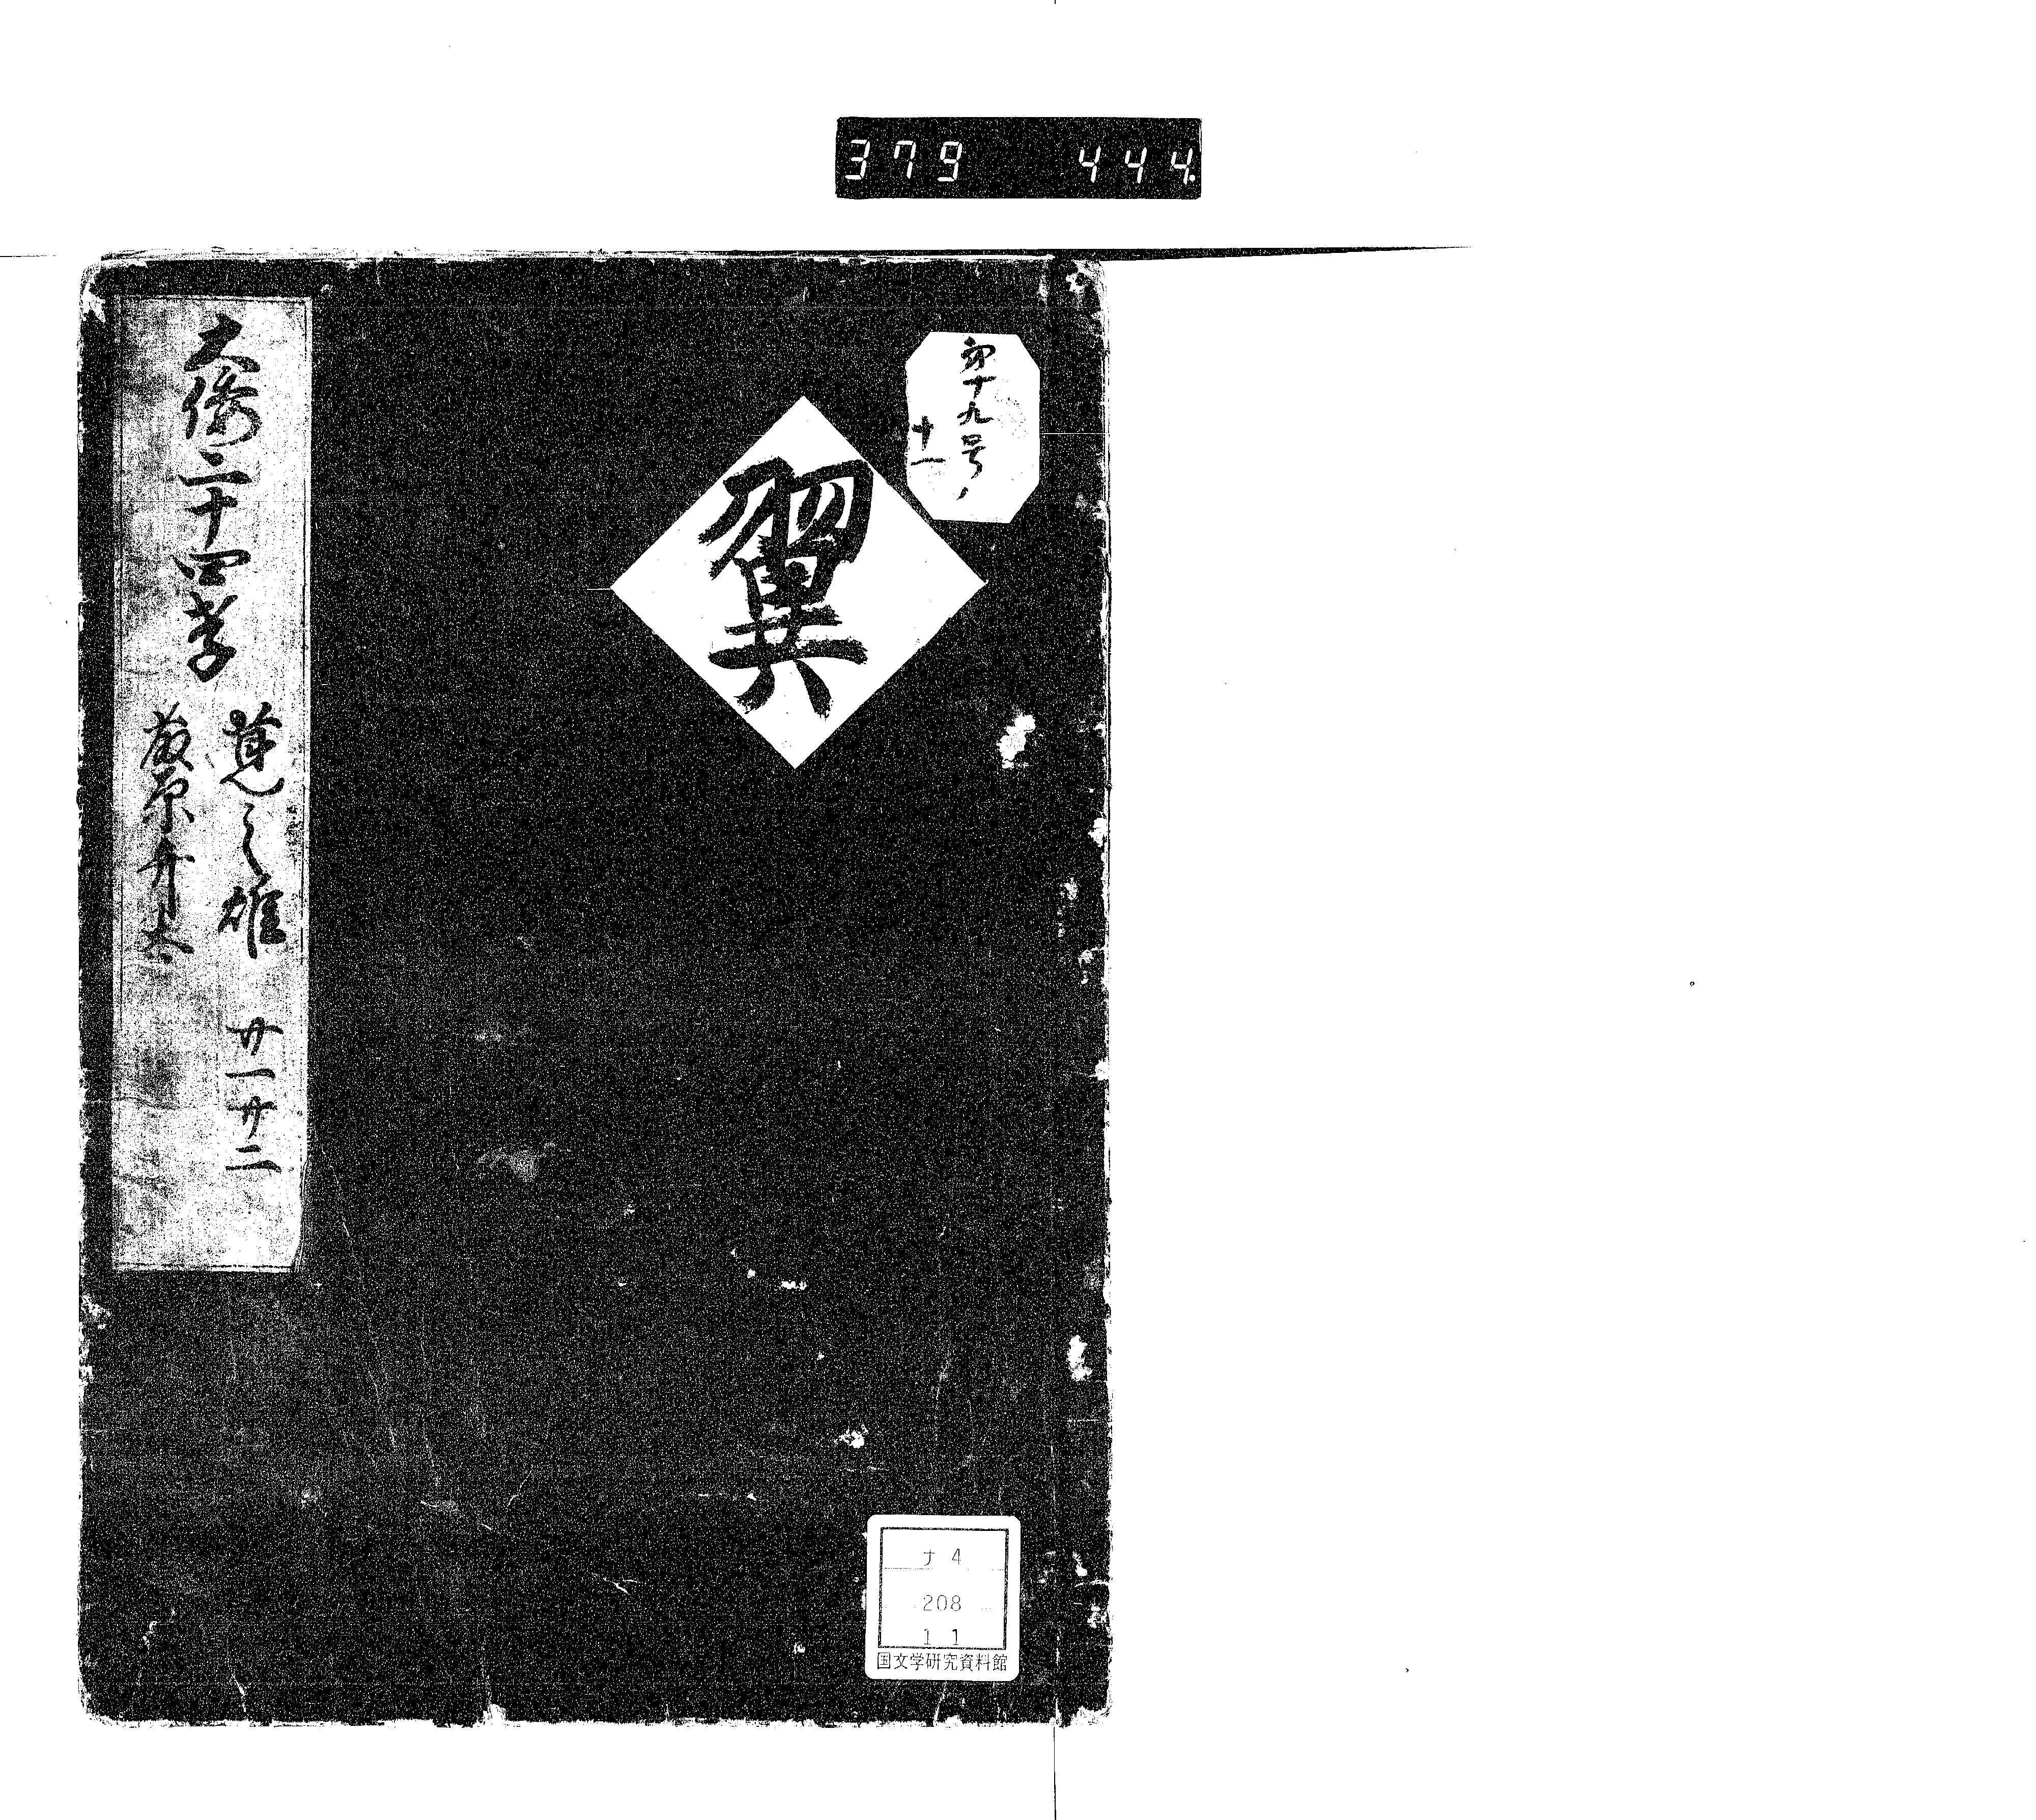 379 444.
第十九号ノ
十一
翼
大倭二十四孝
覚之雄 廿一廿二
藤原弁太
ナ 4
208
11
国文学研究資料館